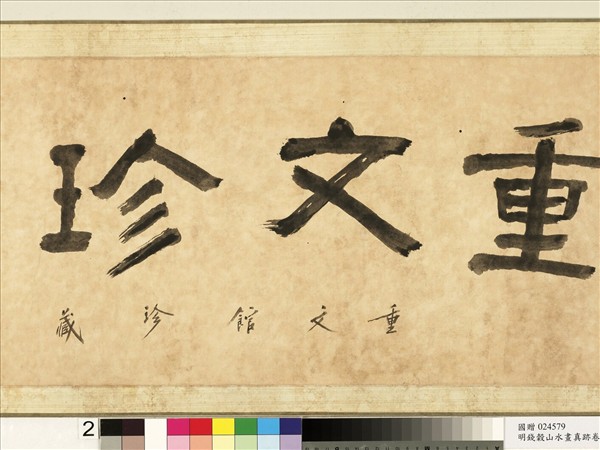 重文珍
重文館珍藏
2
國贈 024579
明錢穀山水畫真跡卷